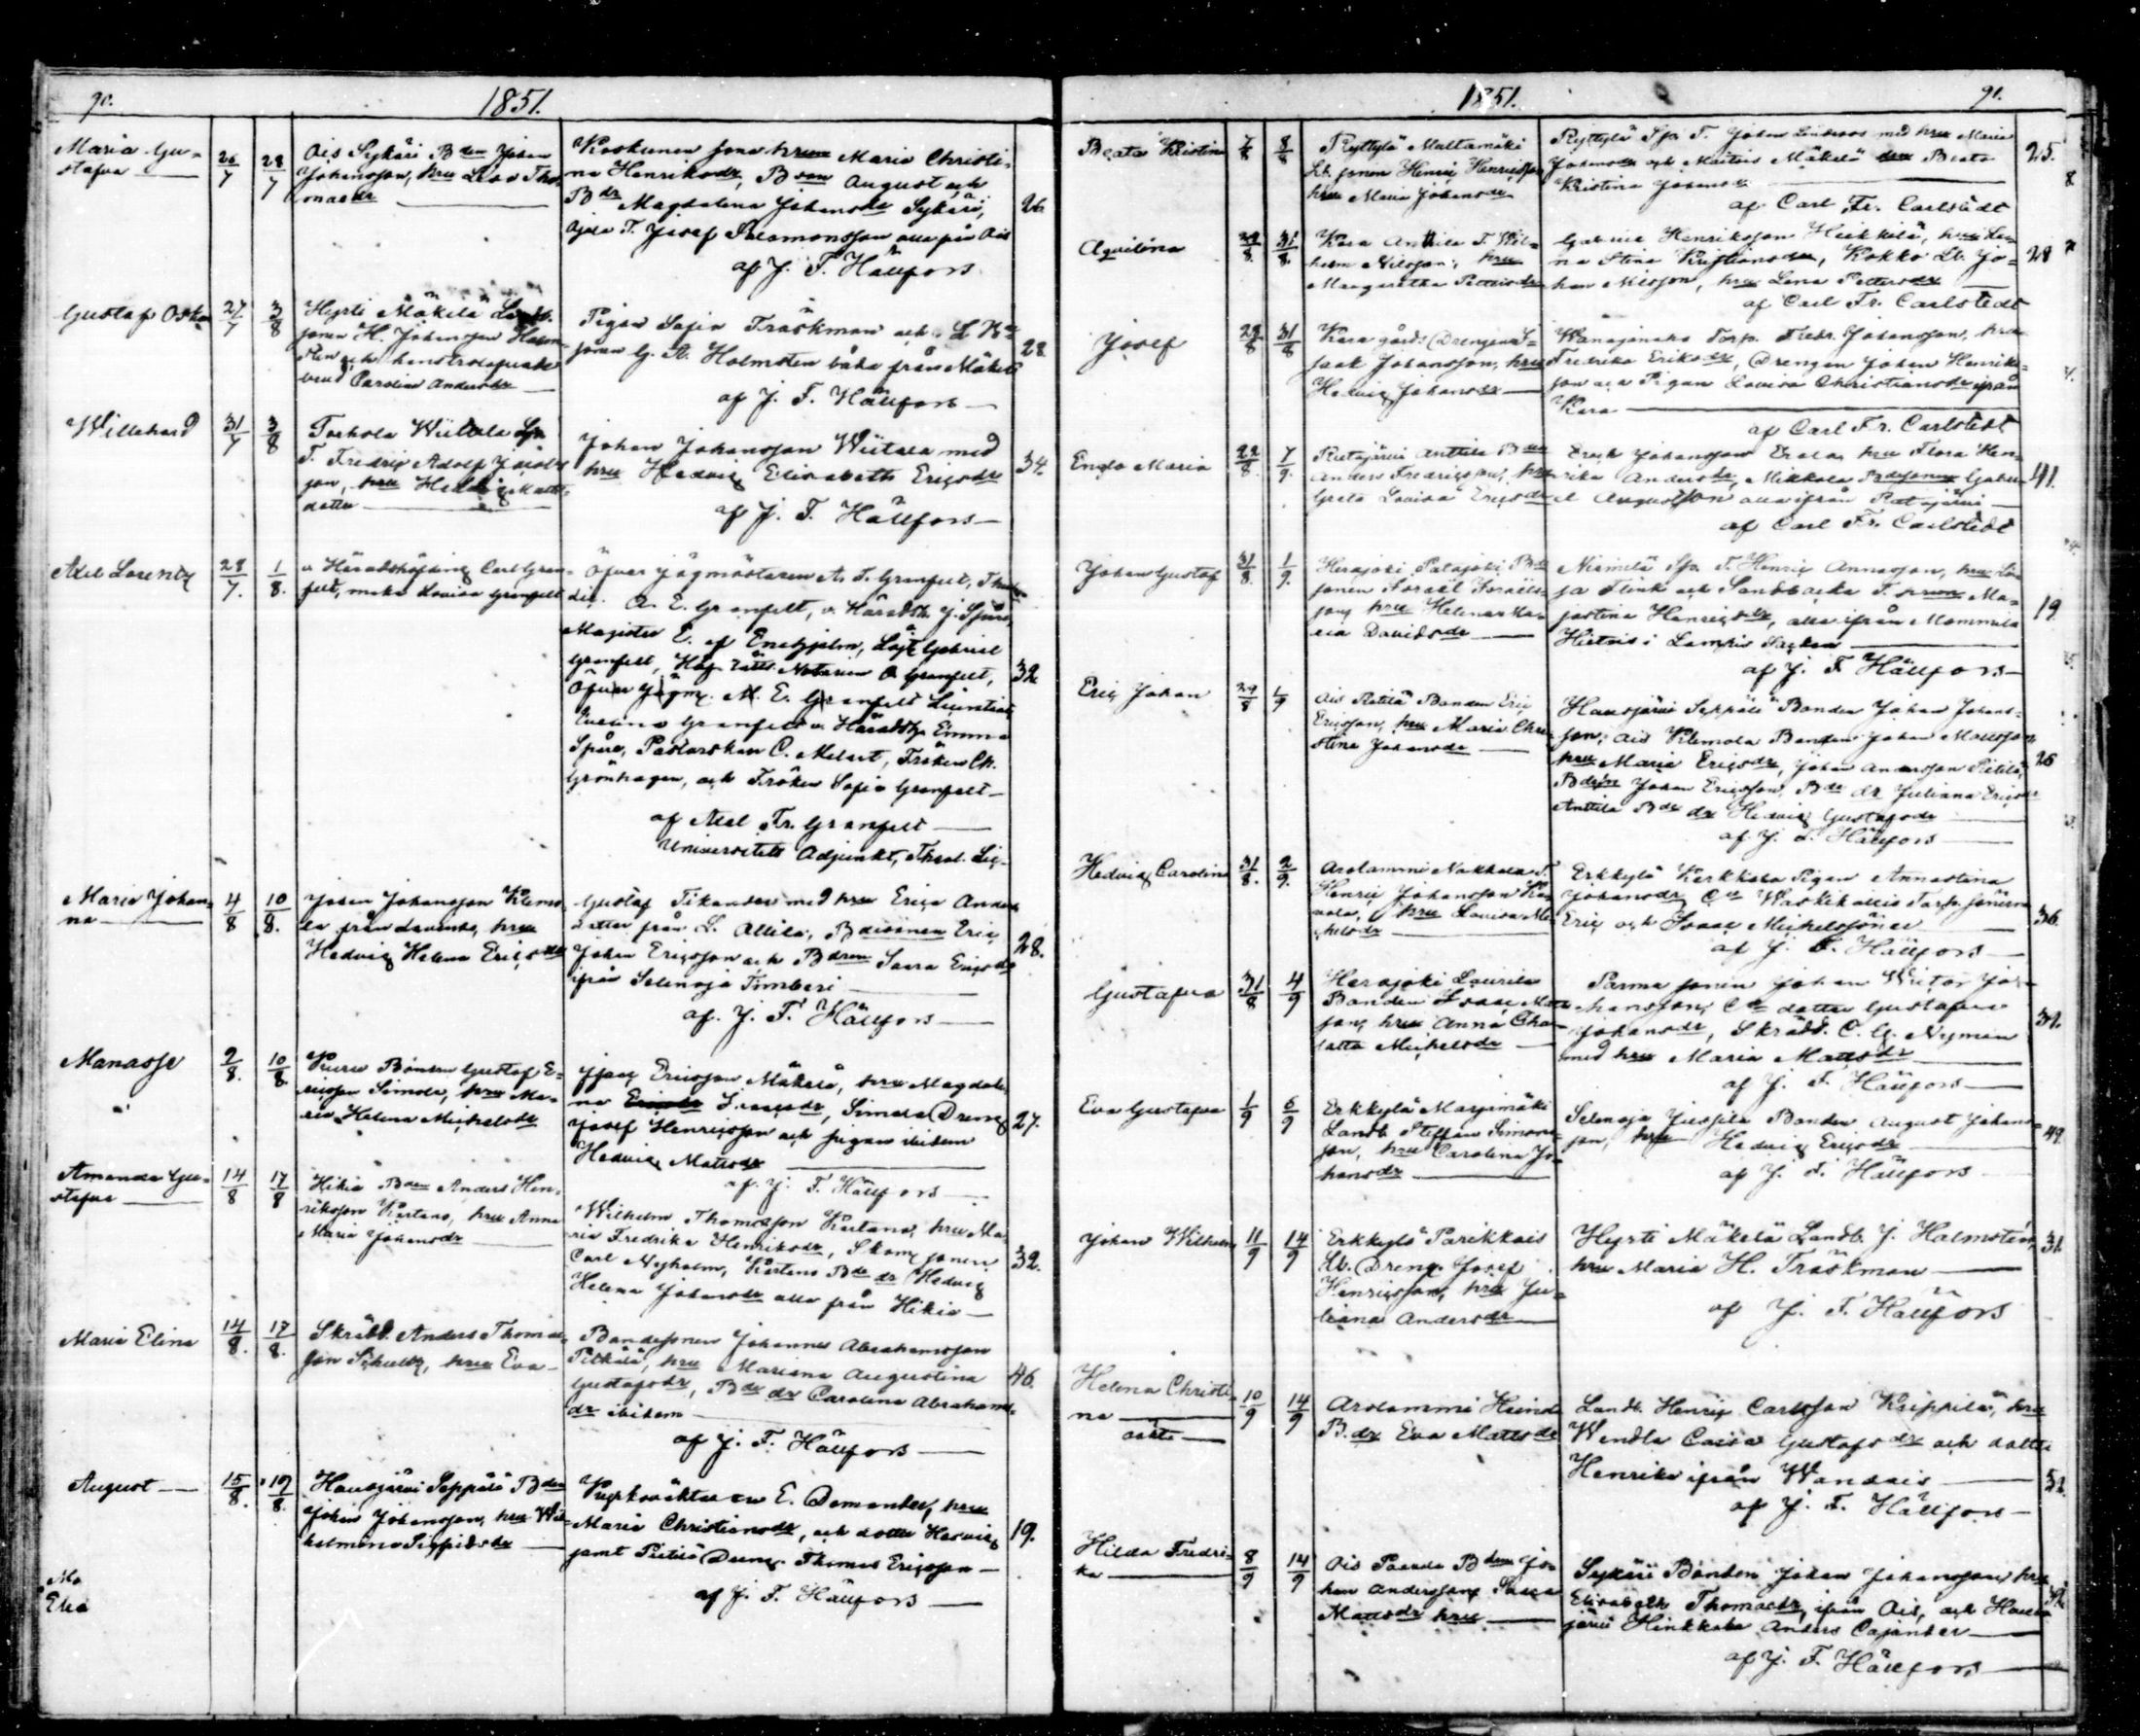 90.
1851.
Maria Gu-
stafva
26/7
28/7
Ois Sykäri Bden Johan
Johansson, hru Lisa Tho-
masdr
Koskunen Jona hrun Maria Christi-
na Henriksdr, Bson August och
Bdr Magdalena Johansdr Sykäri,
Ojala T. Josef Salomonsson alla från Ois
af J. F. Hällfors
26.
Gustaf Oska
27/7
3/8
Hyrti Mäkelä
sonen H. Johansson Holm-
sten och
Carolina Andersdr
Pigan Sofia Träskman och
sonen G. A. Holmsten båda från Mäkelä
af J. F. Hällfors
28
Willehard
31/7
3/8
Torhola Wiitala
T. Fredrik Adolf Jacobs-
son, hru Hedvig Matts-
dotter
Johan Johansson Wiitala med
hru Hedvig Elisabeth Ericsdr
af J. F. Hällfors
34.
Axel Lorentz
28/7.
1/8.
v. Häradshöfding Carl Gran-
felt, maka Lovisa Granfelt
Öfver Jägmästaren A. F. Granfelt,
A. E. Granfelt, v. Häradsh. J. Spåre,
Magister E. af Enehjelm, Löjt. Gabriel
Granfelt, Hof rätts Notarien O. Granfelt,
Öfver Jägm. M. E. Granfelt
Evelina Granfelt v. Häradsh. Emma
Spåre, Pastorskan C. Melart, Fröken Ch.
Grönhagen, och Fröken Sofia Granfelt
af Axel Fr. Granfelt
Universitets Adjunkt, Theol. Lic.
32
Maria Johan-
na
4/8
10/8.
Johan Johansson
från hru
Hedvig Helena Ericsdr
Gustaf Tikander med hru Erica Anders
dotter från L. Allila, Eric
Johan Ericsson och Saara Ericsdr
ifrån Selensoja Timberi
af. J. F. Hällfors
28.
Manasse
2/8.
10/8.
Bonden Gustaf E-
ricsson Simola, hru Ma-
ria Helena Michelsdr
Isaac Ericsson Mäkelä, hru Magdale-
na Isaacsdr, Simola Dreng
Josef Henricsson och pigan ibidem
Hedvig Matsdr
af J. F. Hällfors
27.
Amanda Gu-
stafva
14/8
17/8
Hikiä Bden Anders Hen-
riksson Kärtano, hru Anna
Maria Johansdr
Wilhelm Thomasson Kärtano, hru Ma-
ria Fredrika Henriksdr, Skom. sonen
Carl Nyholm, Kärtano Bde dr Hedvig
Helena Johansdr alla från Hikiä
32.
Maria Elina
14/8.
17/8.
Skrädd. Anders Thomas-
son Schultz, hru Eva
Bondesonen Johannes Abrahamsson
Pitkälä, hru Mariana Augustina
Gustafsdr, Bde dr Carolina Abrahams-
dr ibidem
af J. F. Hällfors
46.
August
15/8.
19/8.
Hausjärvi Seppälä Bden
Johan Johansson, hru Wil-
helmina
Kyrkväktaren E. Demander, hru
Maria Christiansdr, och dotter Hedvig
samt Pietilä Dreng. Thomas Ericsson
af J. F. Hällfors
19.
Ma
Elia
1851.
91.
Beata Kristina
7/8
8/8
Ryttylä Maltamäki
Lb. sonen Henric Henricsson
hru Maria Johansdr
Ryttylä T. Johan Lindroos med hru Maria
Johansdr och Mattias Mäkelä hru Beata
Kristina Johansdr
af Carl Fr. Carlstedt
25.
Aqvilina
29/8.
31/8.
Kara Anttila T. Wil-
helm Nilsson, hru
Margaretha Pettersdr
Gabriel Henriksson Heikkilä, hru Le-
na Stina Kristiansdr, Kokko Lb. Jo-
han Nilsson, hru Lena Pettersdr
af Carl Fr. Carlstedt
28
Josef
28/8
31/8
Kara gårds Drengen I-
saak Johansson, hru
Hedvig Johansdr
Torp. Fredr. Johansson, hru
Fredrika Eriksdr, Drengen Johan Henriks-
son och Pigan Lovisa Christiansdr ifrån
Kara
af Carl Fr. Carlstedt
Enda Maria
22/8.
7/9.
Ratajärvi Anttila Bden
Anders Fredricsson, hru
Greta Lovisa Ericsdr
Erick Johansson Erola, hru Flora Hen-
rika Andersdr, Mikkola Bdesonen Gabri-
el Augustson alla ifrån Ratajärvi
af Carl Fr. Carlstedt
41.
Johan Gustaf
31/8.
1/9.
Herajoki Palajoki Bde
sonen Israel Israels-
son hru Helena Ma-
ria Davidsdr
Niemelä T. Henric Annasson, hru Lo-
sa Flink och Sandbacka T. Ma-
jastina Henricsdr, alla ifrån Mommila
Hietois i Lampis Socken
af J. F. Hällfors
19
Eric Johan
29/8
1/9
Ois Pietilä Bonden Eric
Ericsson, hru Maria Chri-
stina Johansdr
Hausjärvi Seppälä Bonden Johan Johans-
son, Ois Klemola Bonden Johan Mattsson
hru Maria Ericsdr, Johan Andersson Pietilä,
Bdeson Johan Ericsson, Bde dr Juliana Ericsdr
Anttila Bde dr Hedvig Gustafsdr
af J. F. Hällfors
26
Hedvig Carolina
31/8.
2/9.
Arolammi Nakkala T.
Henric Johansson
hru Lovisa Mi-
chelsdr
Erkkylä Kerkkola Pigan Annastina
Johansdr Torp. sönerna
Eric och Isaac Michelssöner
af J. F. Hällfors
36.
Gustafva
31/8
4/9
Herajoki Laurila
Bonden Isaac Mats
son, hru Anna Char-
lotta Michelsdr
Parma sonen Johan Victor Jo-
hansson, dotter Gustafva
Johansdr, Skrädd. C. G. Nyman
med hru Maria Mattsdr
af J. F. Hällfors
31.
Eva Gustafva
1/9
6/9
Erkkylä Marjamäki
Landb. Steffan Simons-
son, hru Carolina Jo-
hansdr
Selensoja Jussila Bonden August Johans-
son, hru Hedvig Ericsdr
af J. F. Hällfors
49
Johan Wilhelm
11/9
14/9
Erkkylä Parikkais
Lb. Dreng. Josef
Henricsson, hru Ju-
liana Andersdr
Hyrti Mäkelä Landb. J. Holmstén,
hru Maria H. Träskman
af J. F. Hällfors
31.
Helena Christi-
na
oäkta
10/9
14/9
Arolammi
B. dr Eva Mattsdr
Landb. Henric Carlsson Knippilä, hru
Wendla Caisa Gustafsdr och dotter
Henrika ifrån Wandais
af J. F. Hällfors
Hilda Fredri-
ka
8/9
14/9
Ois Paavola Bden Jo-
han Andersson,
Mattsdr hru
Sykäri Bonden Johan Johansson, hru
Elisabeth Thomasdr, ifrån Ois, och Haus-
järvi Hinkkala Anders Cajander
af J. F. Hällfors